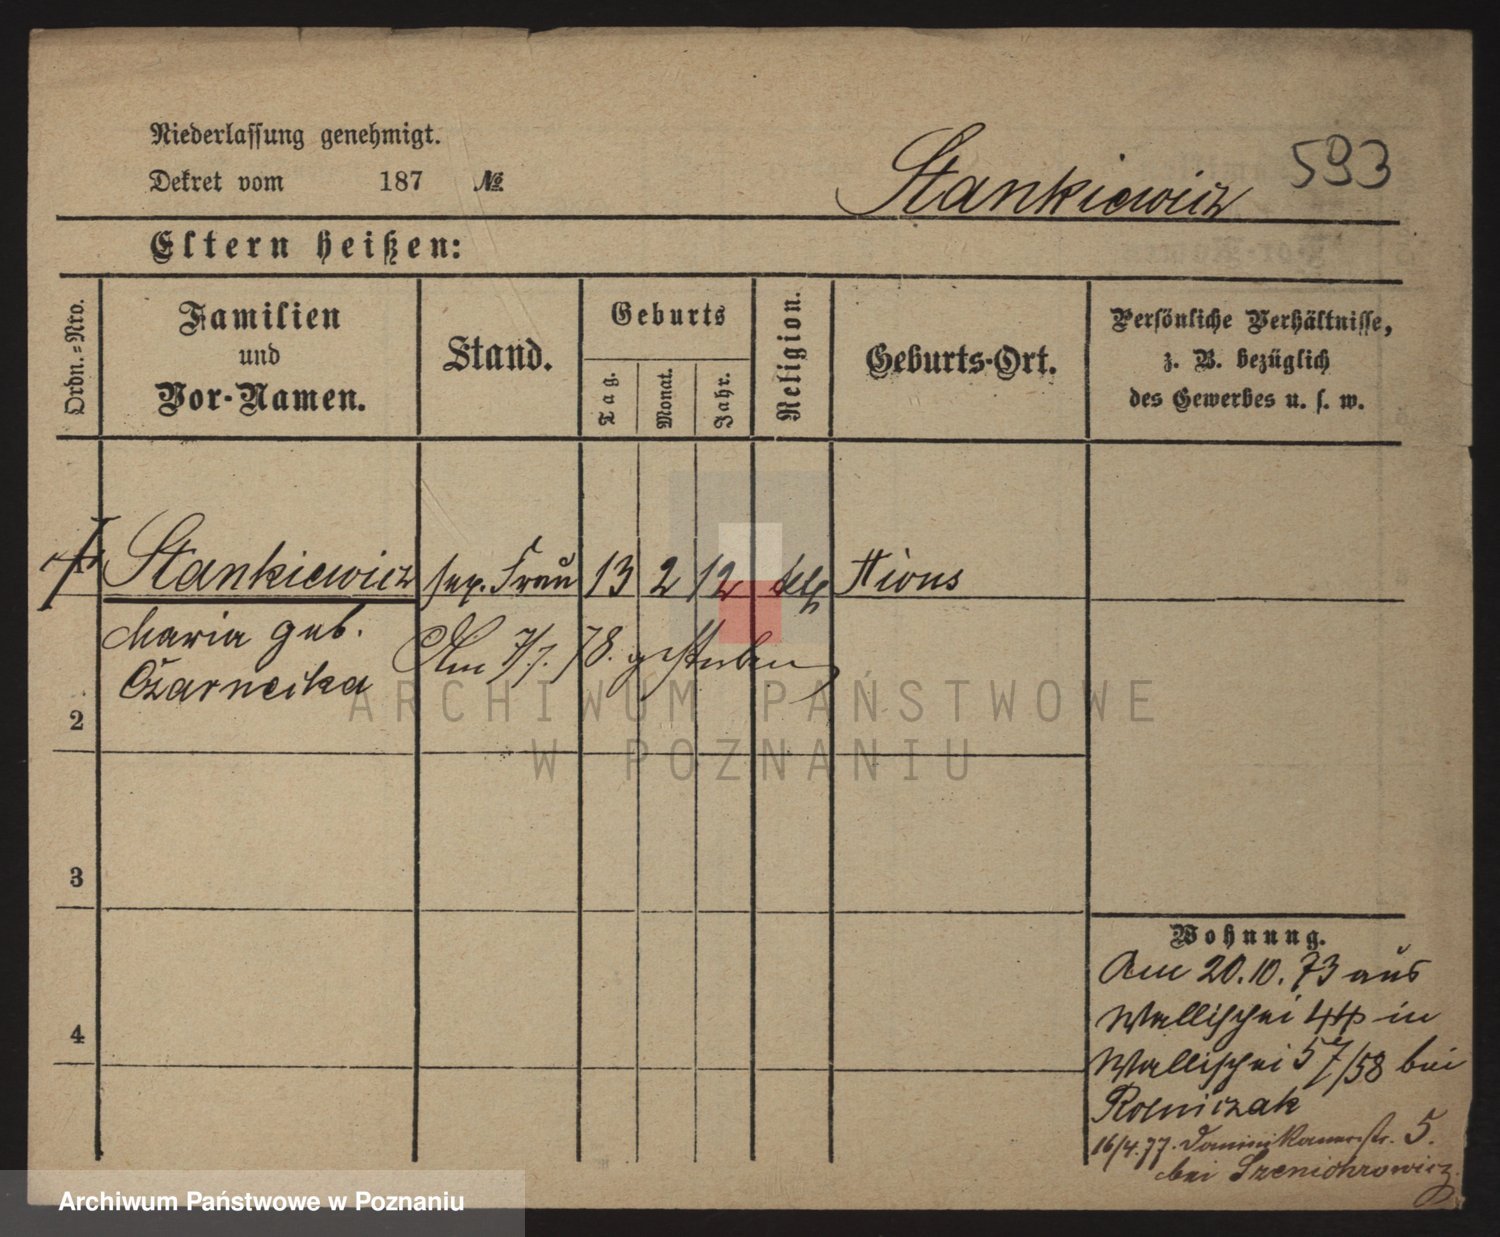 Niederlassung genehmigt.
Dekret vom 187 №
Stankiewicz 593
Eltern heißen:
Ordn.=Nro.
Familien
und
Vor-Namen.
Stand.
Geburts
Tag.
Monat.
Jahr.
Religion.
Geburts-Ort.
Persönliche Verhältnisse,
z. B. bezüglich
des Gewerbes u. s. w.
Stankiewicz sep. Frau 13 2 12 kth Xions
Maria geb. Am 7/7. 78. gestorben
Czarnecka
2
3
4
Wohnung.
Am 20.10.73 aus
Wallischei 44 in
Wallischei 57/58 bei
Rolniczak
16/4.77. Dominikanerstr. 5.
bei
ARCHIWUM PAŃSTWOWE
W POZNANIU
Archiwum Państwowe w Poznaniu